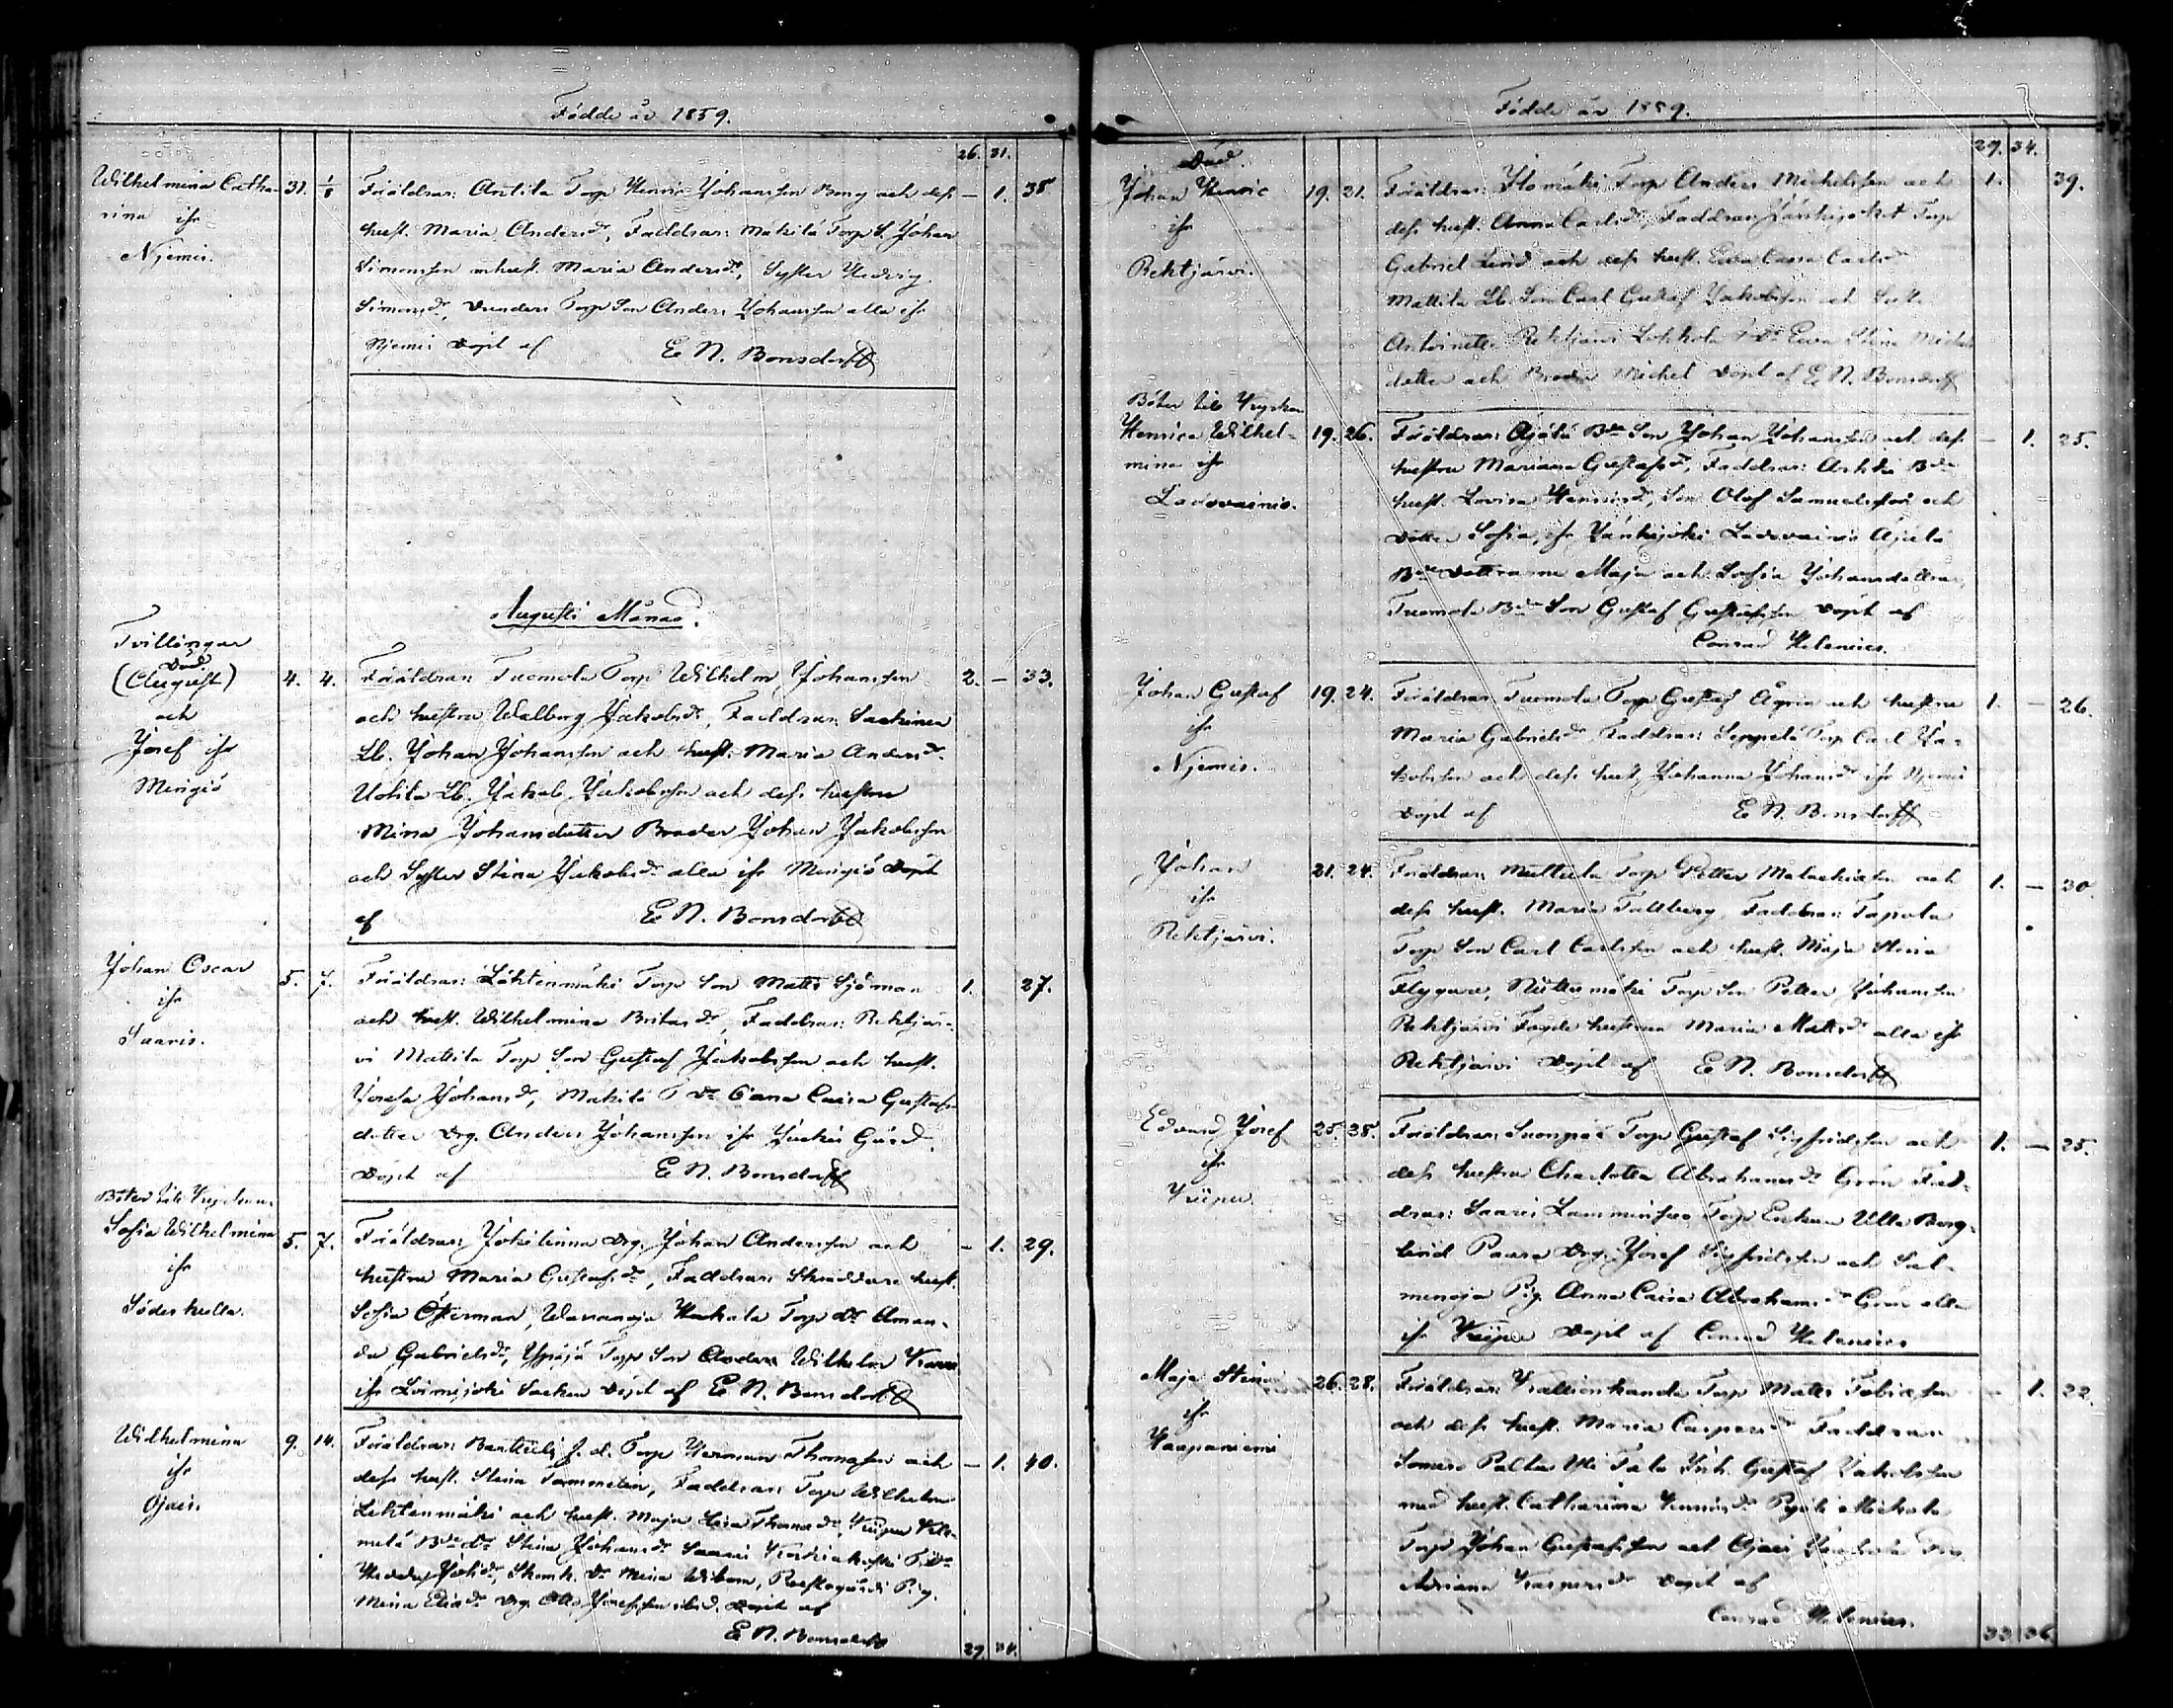 Födde år 1859.
26. 31.
Wilhelmina Catha-
rina ifr
Njemis.
31. 1/8
Föräldrar: Anttila Torp Henric Johansson Berg och dess
hust. Maria Andersdr, Faddrar: Mäkilä Torp S. Johan
Simonsson m hust. Maria Andersdr, Syster Hedvig
Simonsdr, Torp Son Anders Johansson alla ifr
Njemis Döpt af E N. Bonsdorff
— 1. 38
Augusti Månad.
Tvillingar
Död
(August)
och
Josef ifr
Mingiö
4. 4.
Föräldrar: Tuomola Torp Wilhelm Johansson
och hustru Walborg Jakobsdr, Faddrar:
Lb. Johan Johansson och hust. Maria Andersdr.
Uotila Lb. Jakob Jakobsson och dess hustru
Mina Johansdotter Broder Johan Jakobsson
och Syster Stina Jakobsdr alla ifr Mingiö Döpt
af E N. Bonsdorff
2. — 33.
Johan Oscar
ifr
Saaris.
5. 7.
Föräldrar: Lähtenmäki Torp Son Matts Sjöman
och hust. Wilhelmina Britasdr, Faddrar: Rehtijär-
vi Mattila Torp Son Gustaf Jakobsson och hust.
Josefa Johansdr, Mäkilä T Dr Caisa Gustafs-
dotter Drg. Anders Johansson ifr Jockis Gård.
Döpt af E N. Bonsdorff
1. 27.
Sofia Wilhelmina
ifr
Söderkulla.
5. 7.
Föräldrar: Jokilinna Drg. Johan Andersson och
hustru Maria Gustafsdr, Faddrar: Skräddare hust.
Sofia Österman, Torp Dr Aman-
da Gabrielsdr, Ypäjä Torp Son Anders Wilhelm
ifr Loimijoki Socken Döpt af E N. Bonsdorff
— 1. 29.
Wilhelmina
ifr
Ojais.
9. 14.
Föräldrar: f. d. Torp Herman Thomasson och
dess hust. Stina Tammelin, Faddrar: Torp Wilhelm
Lehtinmäki och hust. Maja Lisa Thomasdr,
Stina Johansdr Saaris
Mina Wibom, Pig.
Mina Drg. Otto Josefsson ibid. Döpt af
E N. Bonsdorff
— 1. 40.
29. 34.
Födde år 1859.
29. 34.
Död
Johan Henric
ifr
Rehtjärvi.
19. 21.
Föräldrar: Torp Anders Michelsson och
dess hust. Anna Carlsdr, Faddrar: Torp
Gabriel Lind och dess hust. Eva Caisa Carlsdr
Mattila Lb. Son Carl Gustaf Jakobsson och hust.
Antoinetta Rehtjärvi Eva Stina Michels-
dotter och Broder Michel Döpt af E N. Bonsdorff
1. 39.
Henrica Wilhel-
mina ifr
Ladovainio.
19. 26.
Föräldrar: Äjälä Bde Son Johan Johansson och dess
hustru Mariana Gustafsdr, Faddrar: Anttila Bde
hust. Lovisa Henricsdr, Son Olof Samuelsson och
Dotter Sofia, ifr Jänhijoki Ladovainio Äjälä
Bde Döttrarne Maja och Sofia Johansdöttrar,
Tuomola Bde Son Gustaf Gustafsson Döpt af
Conrad Helenius.
— 1. 25.
Johan Gustaf
ifr
Njemis.
19. 24.
Föräldrar: Tuomola Torp Gustaf Ågren och hustru
Maria Gabrielsdr, Faddrar: Seppälä Torp Carl Ja-
kobsson och dess hust. Johanna Johansdr ifr Njemis
Döpt af E N. Bonsdorff
1. — 26.
Johan
ifr
Rehtjärvi.
21. 24.
Föräldrar: Torp Petter Malachiasson och
dess hust. Maria Tallberg, Faddrar: Tapola
Torp Son Carl Carlsson och hust. Maja Stina
Flygare, Torp Son Petter Johansson
Rehtjärvi hustru Maria Mattsdr alla ifr
Rehtjärvi Döpt af E N. Bonsdorff
1. — 30.
Edvard Josef
ifr
Kiipu.
25. 28.
Föräldrar: Suonpää Torp Gustaf Sigfridsson och
dess hustru Charlotta Abrahamsdr Grön Fad-
drar: Saaris Torp Enkan Ulla Berg-
lind Paara Drg. Josef Sigfridsson och Sal-
menoja Pig. Anna Caisa Abrahamsdr Grön alla
ifr Kiipu Döpt af Conrad Helenius
1. — 25.
Maja Stina
ifr
Haapaniemi
26. 28.
Föräldrar: Torp Matts Tobiasson
och dess hust. Maria Caspersdr Faddrar:
Somero Palka Yli Tala Gustaf Jakobsson
med hust. Catharina Henricsdr
Torp Johan Gustafsson och Ojais
Adriana Kaspersdr Döpt af
Conrad Helenius.
— 1. 22.
33 36